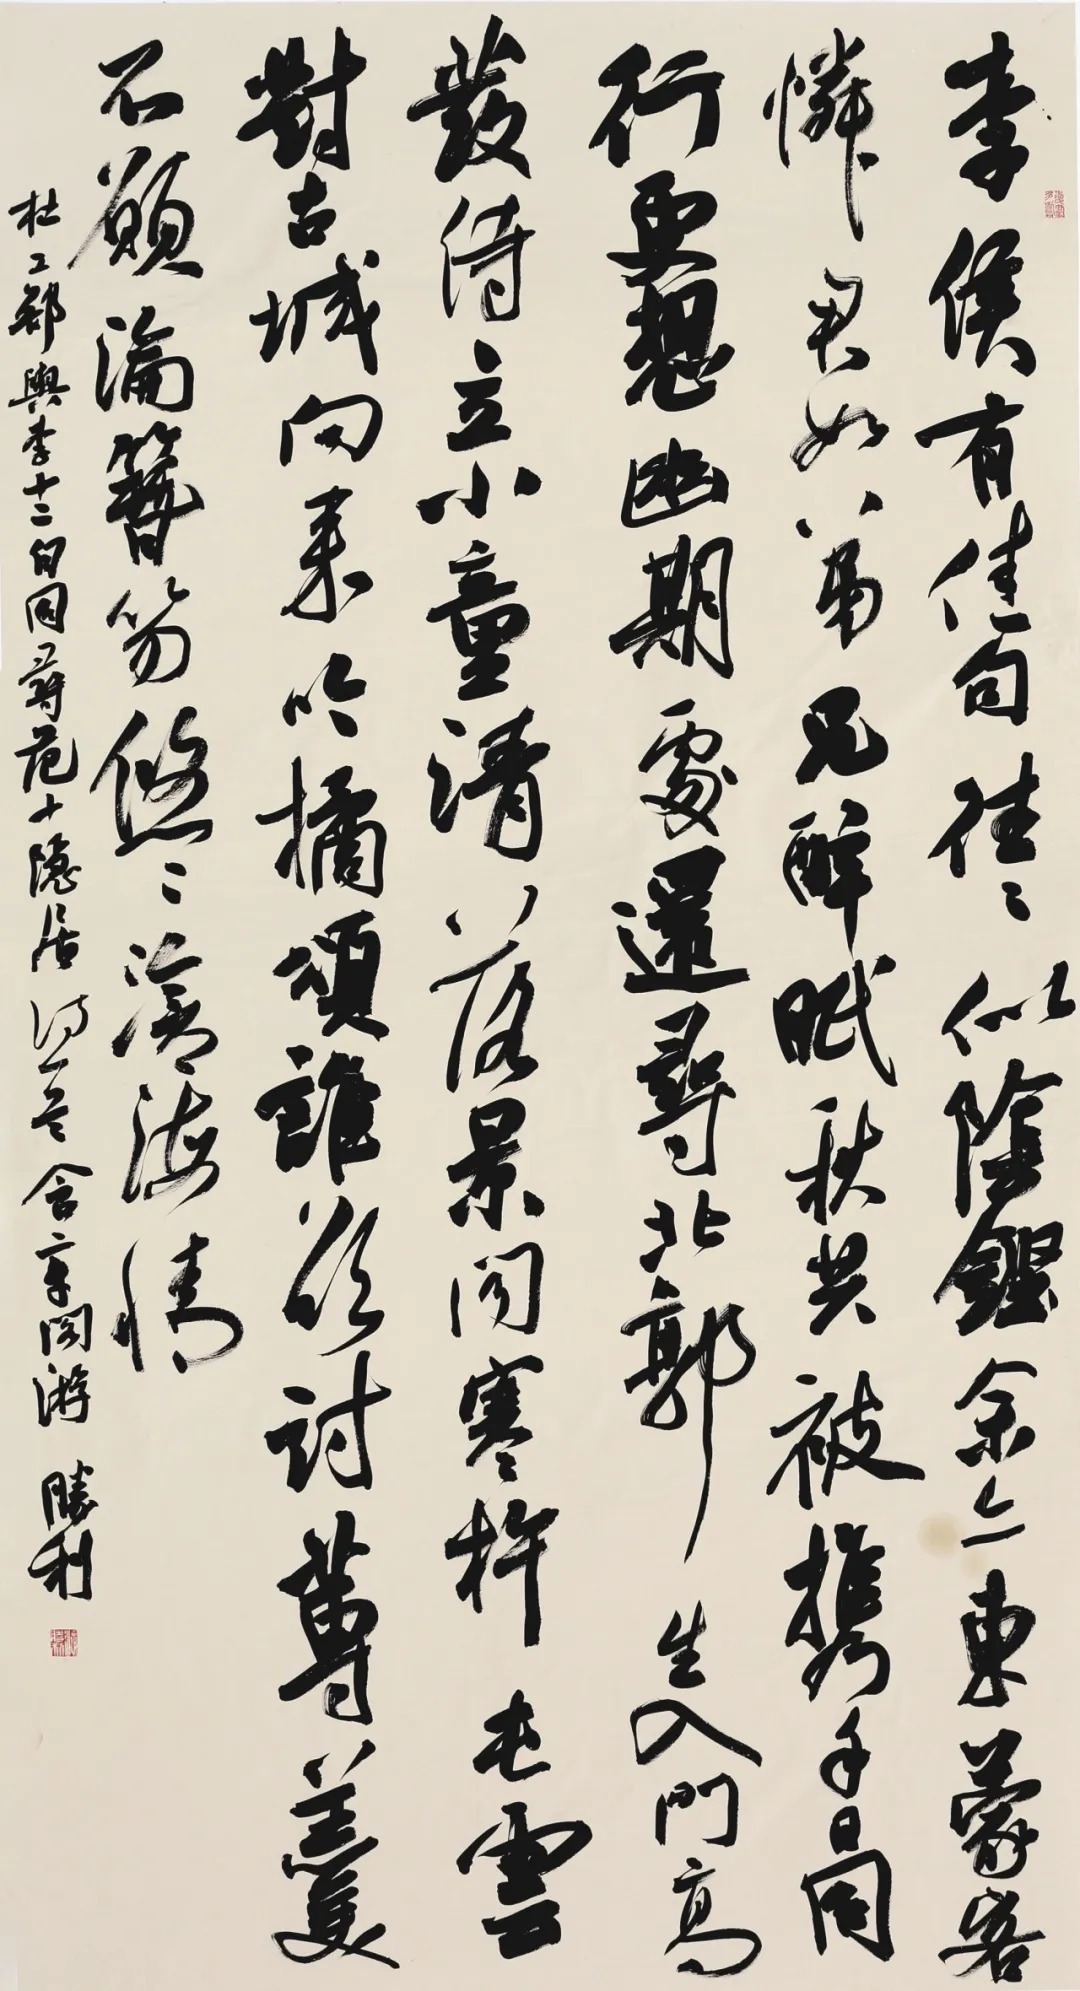 李侯有佳句往〻似陰鏗余亦東蒙客
憐君如弟兄醉眠秋共被携手日同
行更想幽期處還尋北郭生入門高
發侍立小童清落景聞寒杵屯雲
對古城向來吟橘頌誰欲討蓴羹
不願淪簪笏悠〻滄海情
杜工部與李十二白同尋范十隱居詩一首含章閣游勝利